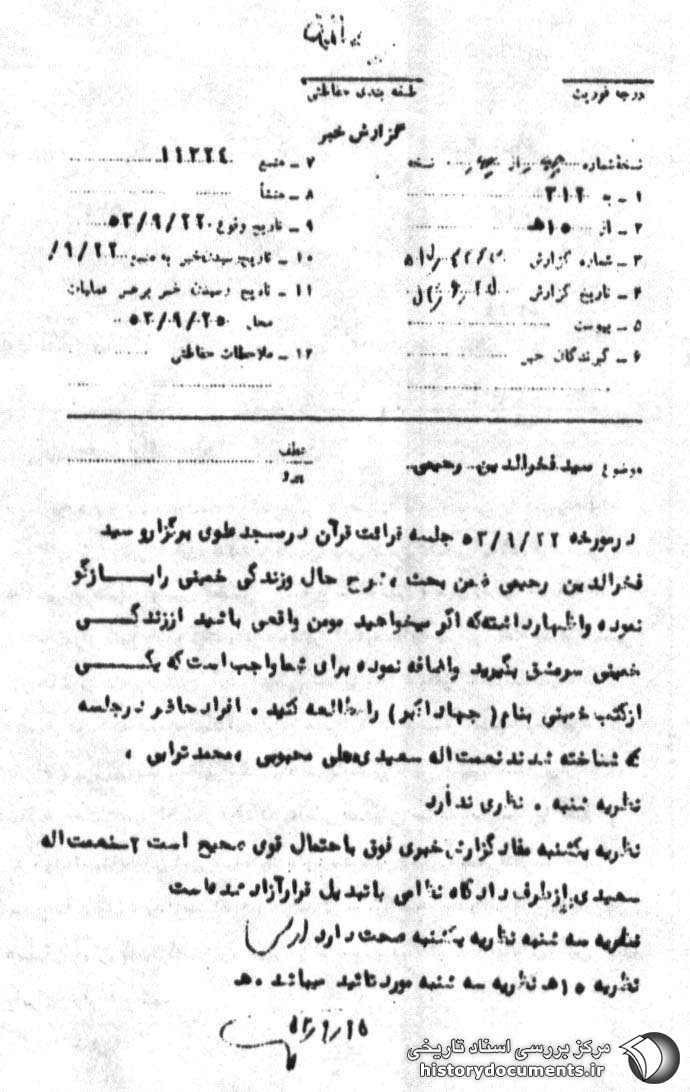 درجه فوریت
طبقه بندی حفاظتی
گزارش خبر
نسخه شماره از نسخه
۱ ـ به ۳۱۲
۲ ـ از ۱۵ هـ
۳ ـ شماره گزارش
۴ ـ تاریخ گزارش
۵ ـ پیوست
۶ ـ گیرندگان خبر
۷ ـ منبع ۱۱۲۲۴
۸ ـ منشأ
۹ ـ تاریخ وقوع ۵۳/۹/۲۲
۱۰ ـ تاریخ رسیدن خبر به منبع ۹/۲۲/
۱۱ ـ تاریخ رسیدن خبر برهبر عملیات
محل ۵۳/۹/۲۵
۱۲ ـ ملاحظات حفاظتی
موضوع سید فخرالدین رحیمی
عطف
پیرو
درمورخه ۵۳/۹/۲۲ جلسه قرائت قرآن درمسجد علوی برگزارو سید
فخرالدین رحیمی ضمن بحث ، شرح حال وزندگی خمینی را بـــازگو
نموده واظهارداشته که اگر میخواهید مومن واقعی باشید اززندگـــی
خمینی سرمشق بگیرید واضافه نموده برای شما واجب است که یکـــی
ازکتب خمینی بنام ( جهاد اکبر ) را مطالعه کنید . افراد حاضر درجلسه
که شناخته شدند نعمت اله سعیدی ، علی محبوبی ، محمد ترابی .
نظریه شنبه . نظری ندارد
نظریه یکشنبه مفاد گزارش خبری فوق باحتمال قوی صحیح است ۲ـ نعمت اله
سعیدی ازطرف دادگاه نظامی باتبدیل قرارآزاد شده است
نظریه سه شنبه نظریه یکشنبه صحت دارد
نظریه ۱۵ هـ نظریه سه شنبه مورد تائید میباشد . هـ
مرکز بررسی اسناد تاریخی
historydocuments.ir